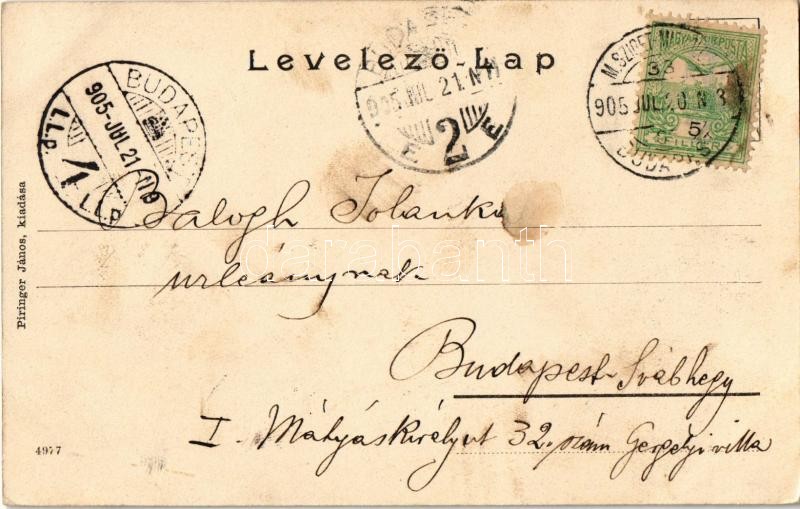 Levelező-Lap
BUDAPEST
905-JUL.21.N9
I.L.P.
905 JUL 21.N11
2
905 JUL.20.N 3
MAGYAR KIR. POSTA
Balogh Jolanka
urleánynak
Budapest Svábhegy
I. Mátyáskirályut 32. szám Gergelyi villa
Piringer János, kiadása
4977
darabanth